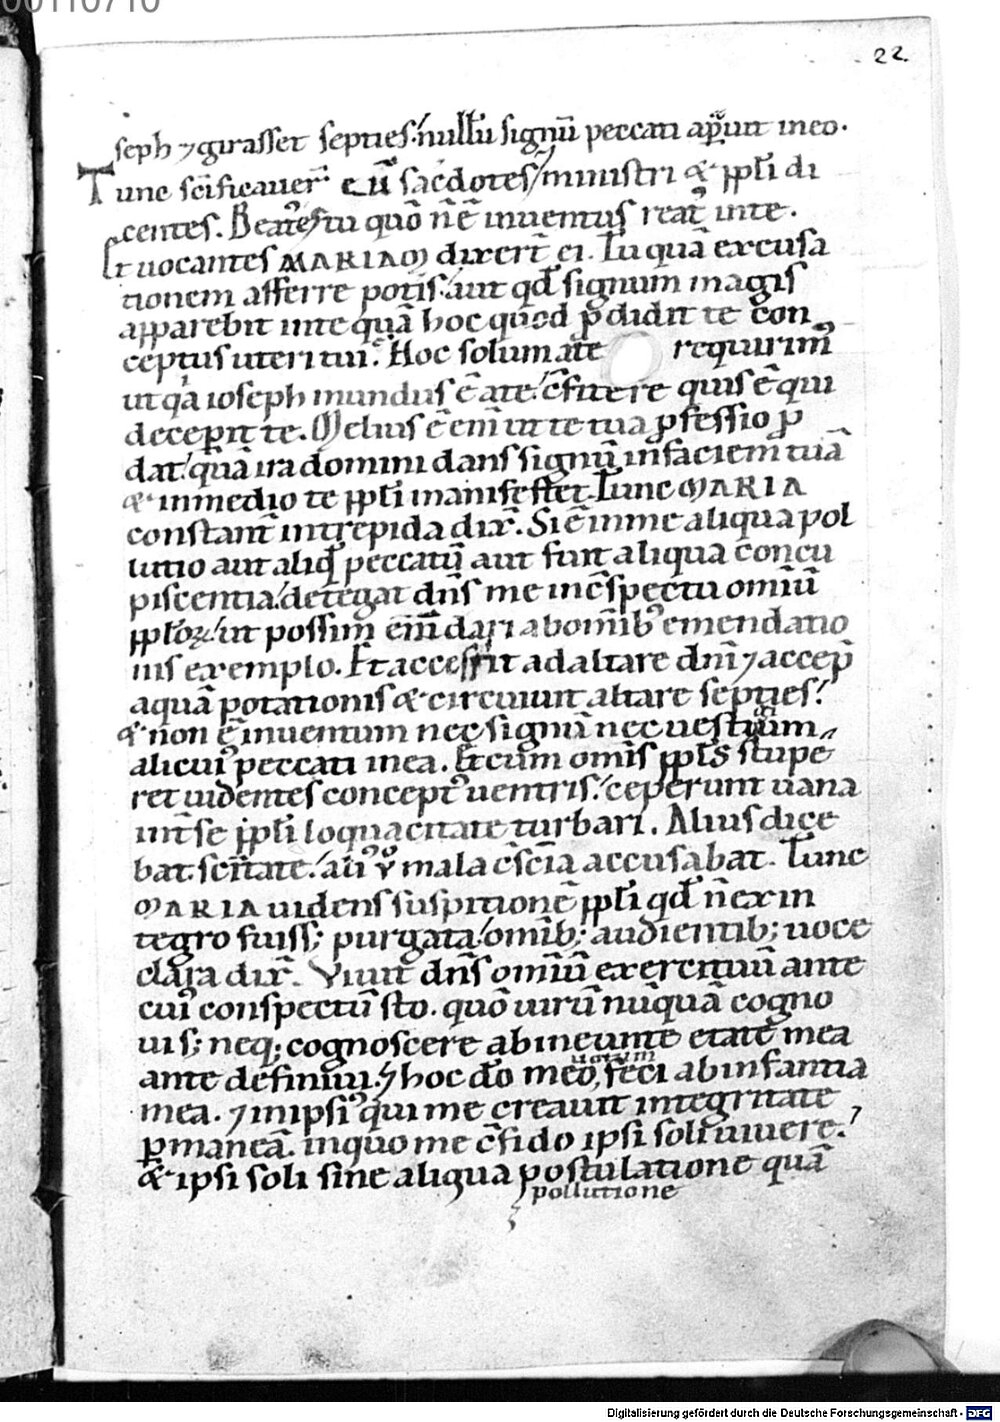 00110710
22.
seph ⁊ girasset septies.' nullū signū peccati aparuit in eo.
Tunc scīficauer̄ eū sacdotes, ministri & ppl̄i di
centes. Beat' es tu quō n̄ ē inuentus reat' in te.
Et uocantes MARIAM dixert̄ ei. Tu quā excusa
tionem afferre potis.' aut qd̄ signum magis
apparebit in te quā hoc quod p̄didit te con
ceptus uteri tui. Hoc solum a te requirim'
ut q̄a ioseph mundus ē a te.' c̄fitere quis ē qui
decep̄it te. Melius ē em̄ ut te tua p̄fessio p̄
dat.' quā ira domini dans signū in faciem tuā
& in medio te ppl̄i manifestet. Tunc MARIA
constant̄ intrepida dix̄. Si ē in me aliqua pol
lutio aut aliqd̄ peccatū aut fuit aliqua concu
piscentia.' detegat dn̄s me in c̄spectu omīū
ppl̄oꝝ.' ut possim em̄dari ab omīb' emendatio
nis exemplo. Et accessit ad altare dn̄i ⁊ accep̄
aquā potationis & circuiuit altare septies.'
& non ē inuentum nec signū nec uestigium
alicui' peccati in ea. Et cum omīs ppl̄s stupe
ret uidentes concept' uentris.' ceperunt uana
int̄ se ppl̄i loquacitate turbari. Alius dice
bat. scītate.' ali' v̊ mala c̄scīa accusabat. Tunc
MARIA uidens suspitionē ppl̄i qd̄ n̄ ex in
tegro fuiss; purgata.' omīb; audientib; uoce
clara dix̄. Viuit dn̄s omīū exercituū ante
cui' conspectū sto. quō uirū nūquā cogno
uis; neq; cognoscere ab ineunte etate mea
ante definiui. ⁊ hoc dō meo, feci ab infantia
uotum
mea. ⁊ in ipsi' qui me creauit integritate
p̄maneā. in quo me c̄fido ipsi soli uiuere.'
& ipsi soli sine aliqua postulatione quā
pollutione
Digitalisierung gefördert durch die Deutsche Forschungsgemeinschaft - DFG